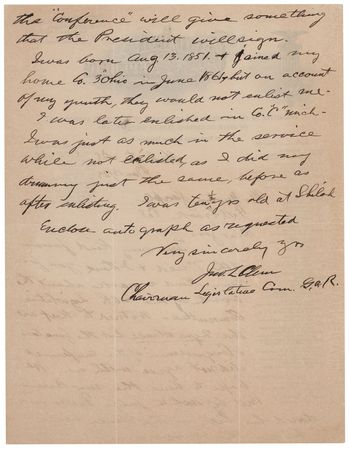 this "Conference" will give something
that the President will sign.
I was born Aug 13. 1851. + joined my
home Co. 3" Ohio in June 1861, but on account
of my youth, they would not enlist me-
I was later enlisted in Co. "C" Mich-
I was just as much in the service
while not enlisted, as I did my
drumming just the same, before as
after enlisting. I was ten yrs old at Shiloh
Enclose autograph as requested
Very sincerely yrs
Jno L Clem
Chairman Legislative Com. G.A.R.